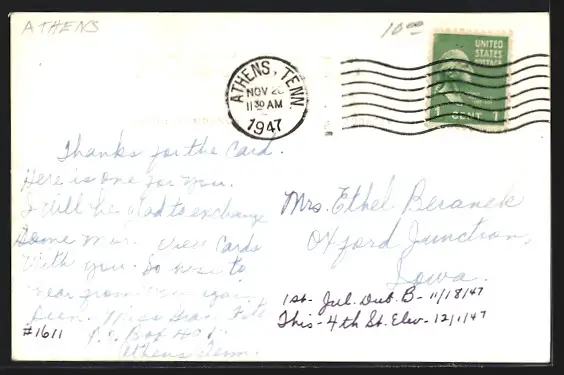 ATHENS
10.00
UNITED
STATES
POSTAGE
CENT 1
ATHENS, TENN.
NOV 2
11 30 AM
1947
Thanks for the Card.
Here is one for you.
I will be glad to exchange
Some more View Cards
With you. So
to
hear from you
Soon. Miss
P.O. Box 401
Athens Tenn.
Mrs. Ethel Beranek
Oxford Junction,
Iowa.
1st- Jul. Dub. B- 11/18/47
This- 4th St. Elev- 12/1/47
#1611